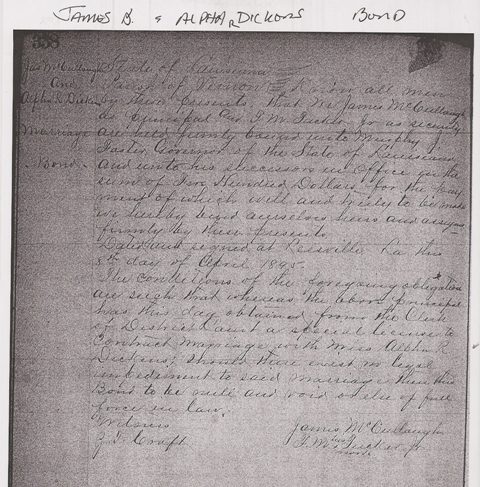 JAMES B. & ALPHA R DICKONS BOND
338
Jas McCullaugh
And
Alpha R. Dickins
Marriage
Bond
State of Louisiana
Parish of Vernon Know all men
by these Presents, that We James McCullaugh
as Principal and T. M. Tucker Jr as security
are held firmly bound unto Murphy J.
Foster, Governor of the State of Louisiana
and unto his successors in Office in the
sum of Five Hundred Dollars, for the pay
ment of which well and truly to be made
we hereby bind ourselves heirs and assigns
firmly by these presents
Dated and signed at Leesville La this
5th day of April 1895
The conditions of the foregoing obligation
are such that whereas the above principal
has this day obtained from the Clerk
of District Court a special license to
Contract marriage with Miss Alpha R.
Dickins, should there exist no legal
impediment to said marriage then this
Bond to be null and void or else of full
force in law.
Witness
Croft
James McCullaugh
T. M. his Tucker Jr
mark